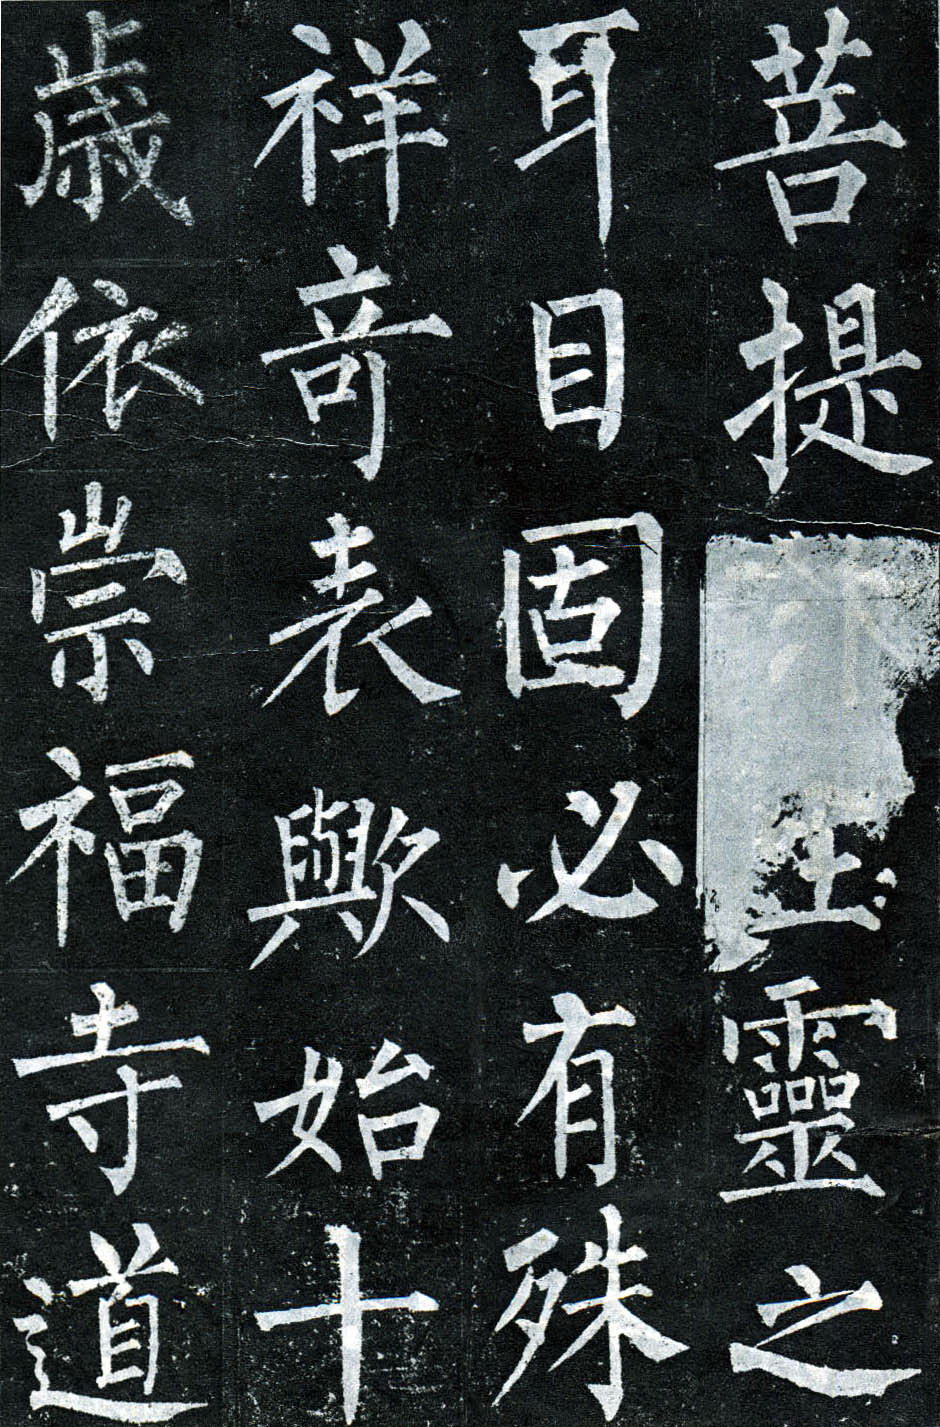 菩提靈之
耳目固必有殊
祥竒表歟始十
歲依崇福寺道